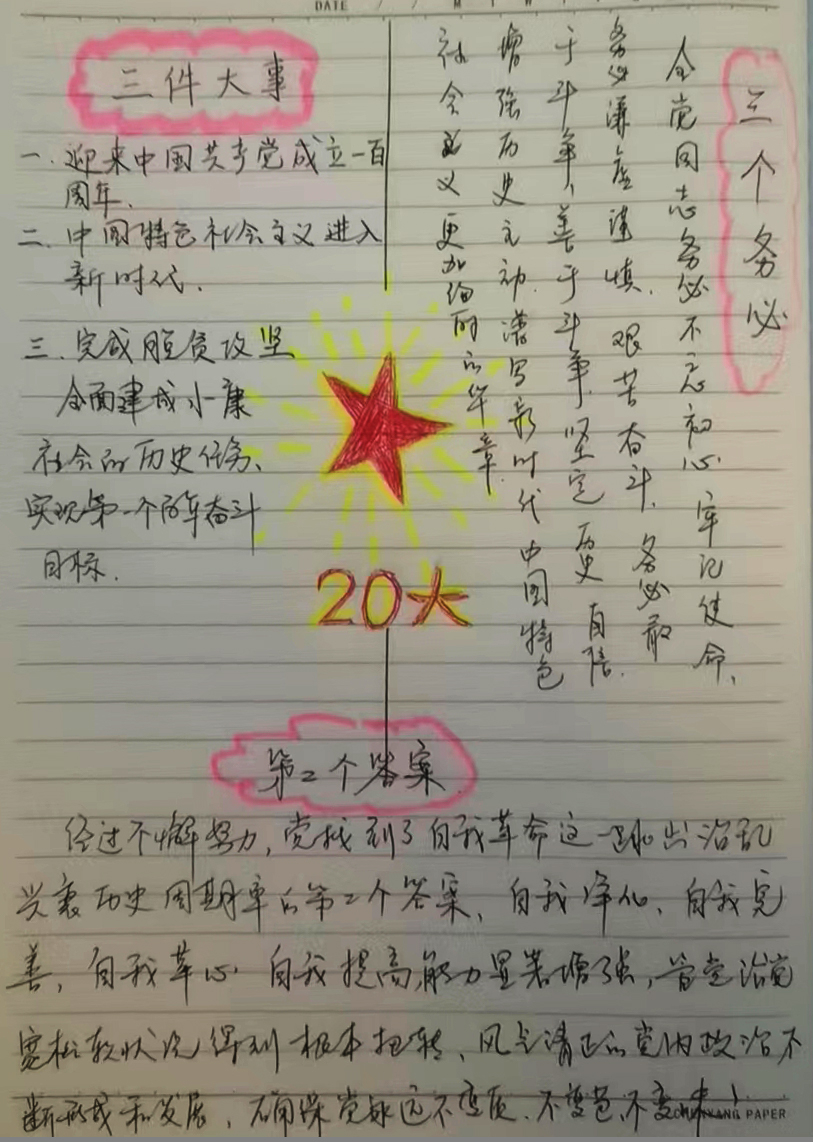 DATE
三件大事
一.迎来中国共产党成立一百
周年.
二.中国特色社会主义进入
新时代.
三.完成脱贫攻坚
全面建成小康
社会的历史任务、
实现第一个百年奋斗
目标.
三个务必
全党同志务必不忘初心 牢记使命、
务必谦虚谨慎.艰苦奋斗.务必敢
于斗争,善于斗争.坚定历史自信.
增强历史主动.谱写新时代中国特色
社会主义更加绚丽的华章.
20大
第二个答案
经过不懈努力,党找到了自我革命这一跳出治乱
兴衰历史周期率的第二个答案、自我净化、自我完
善,自我革新 自我提高能力显著增强,管党治党
宽松软状况得到根本扭转、风气清正的党内政治不
断形成和发展,确保党永远不变质.不变色,不变味!
PAPER